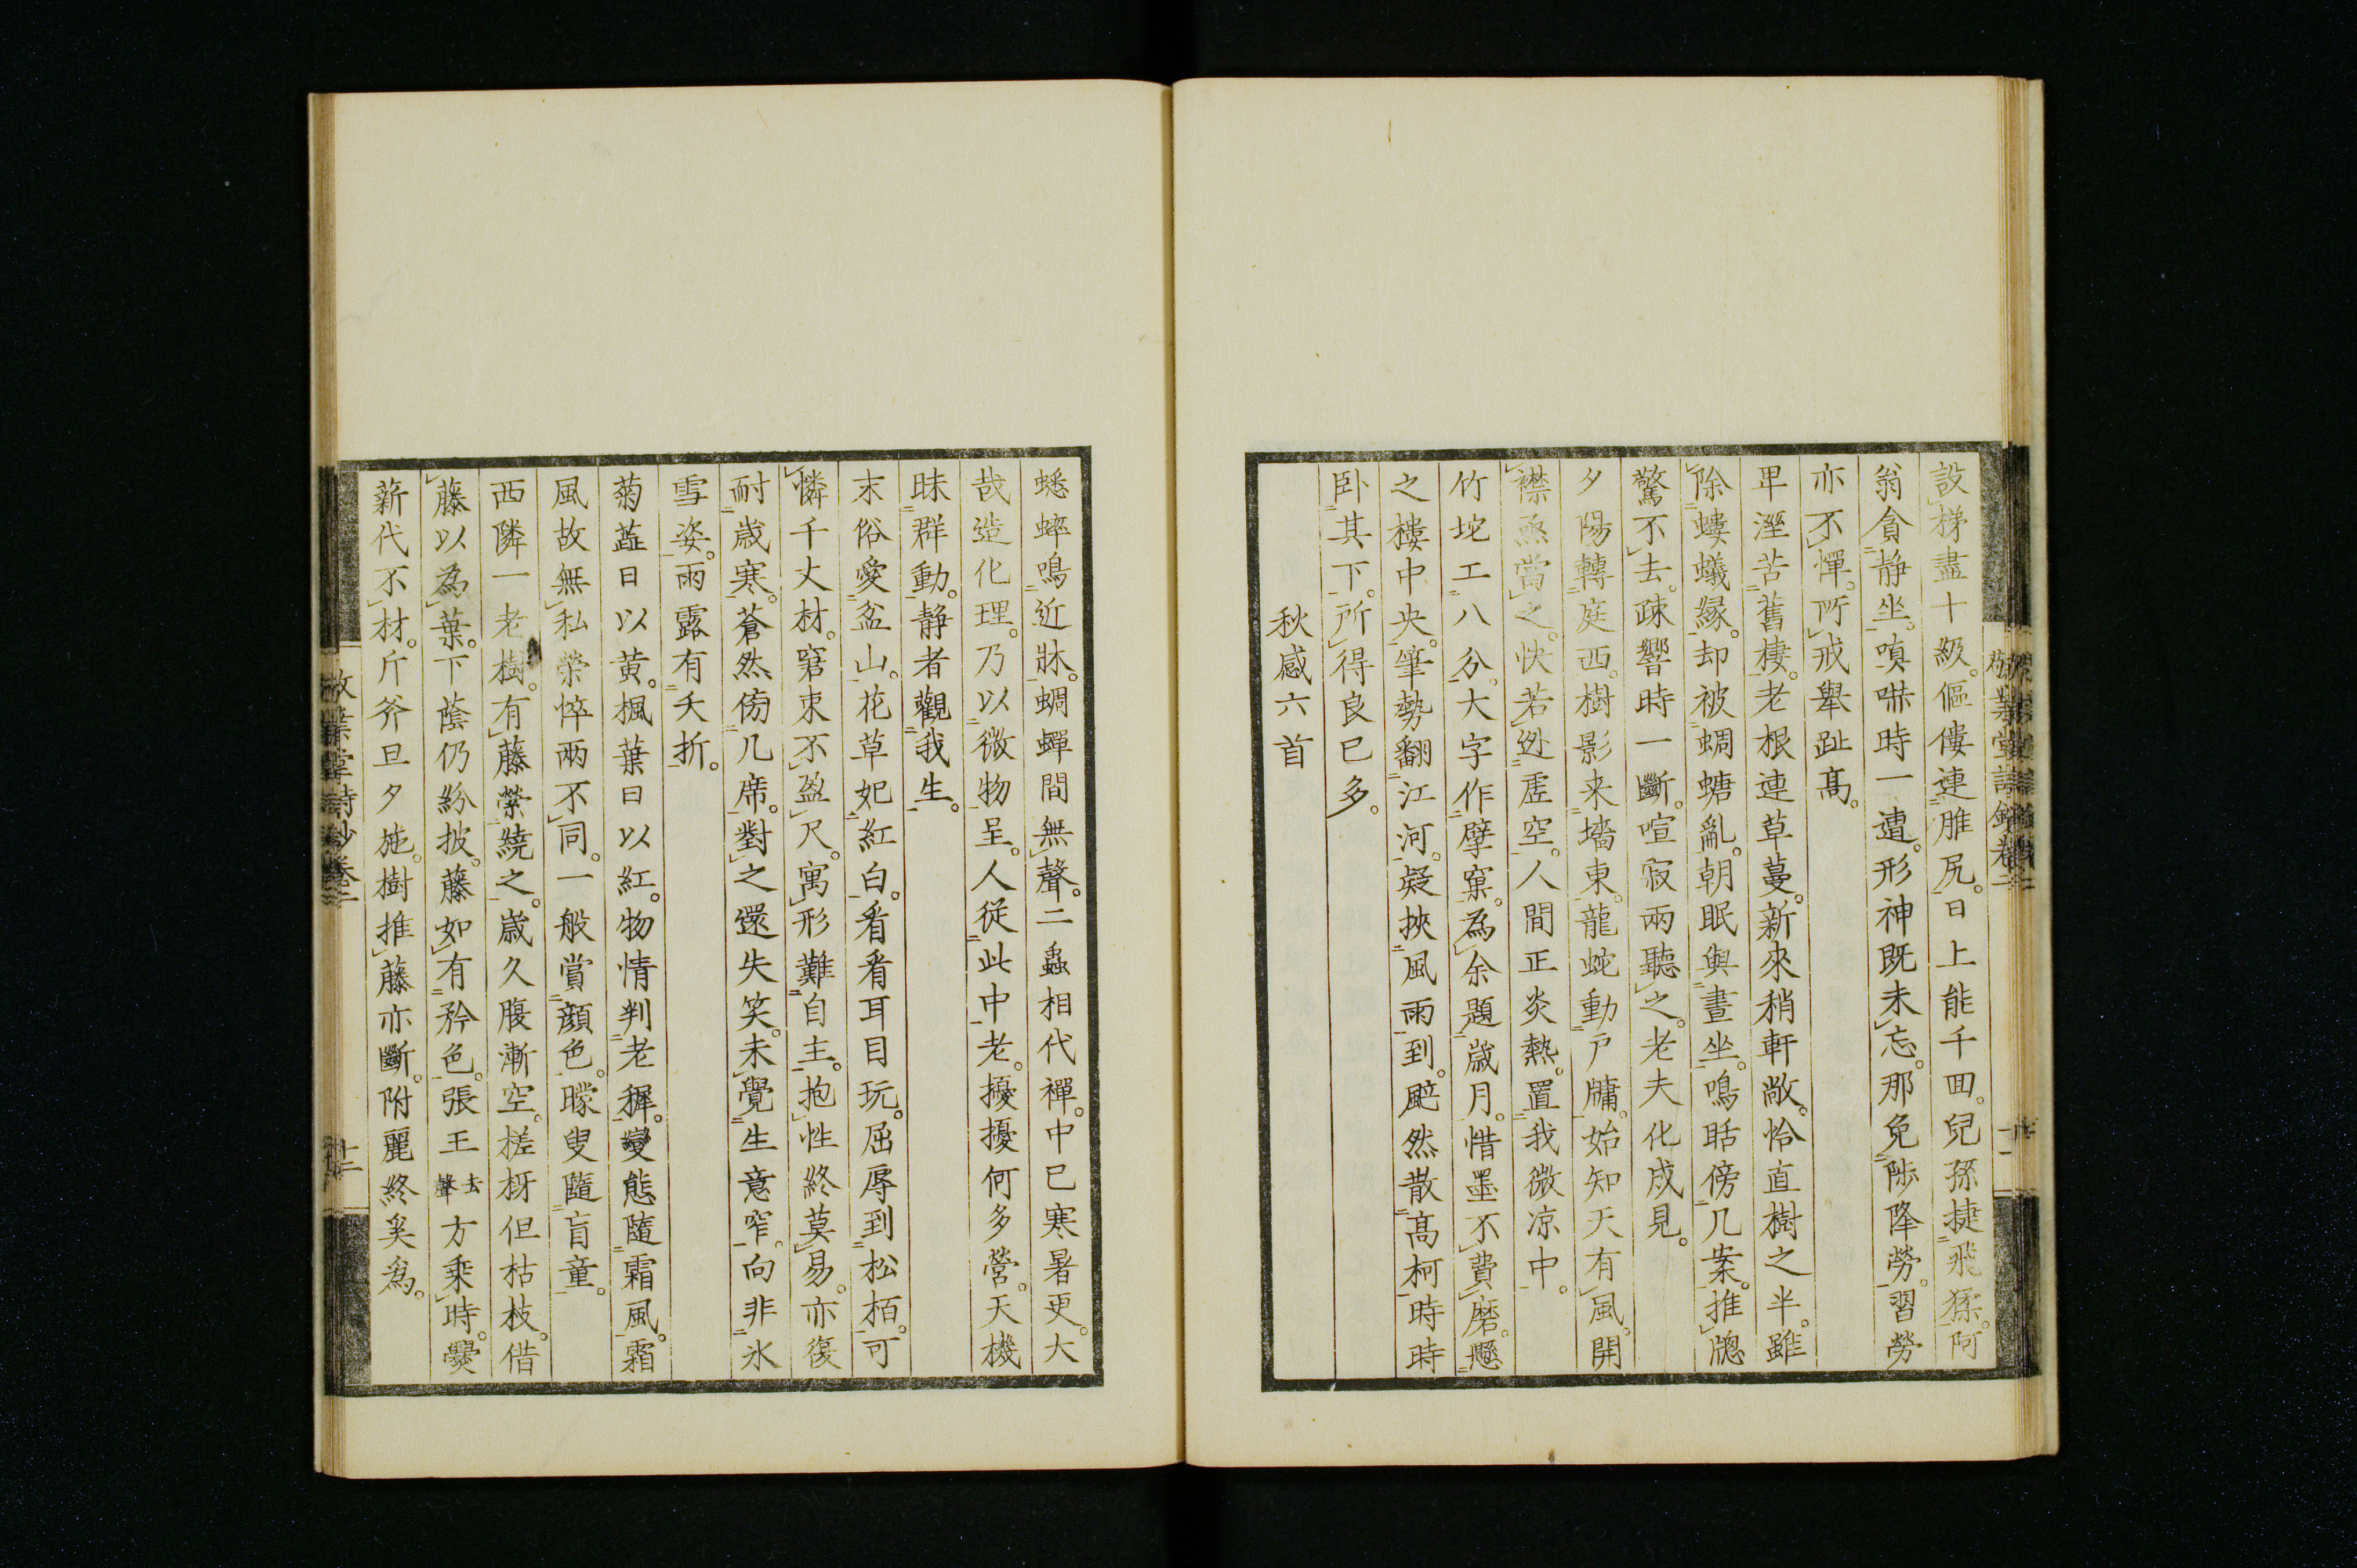 設梯盡十級。傴僂連脽尻。日上能千回。兒孫捷飛猱。阿
翁貪靜坐。嗔嗾時一遭。形神既未忘。那免陟降勞。習勞
亦不憚。所戒舉趾高。
卑溼苦舊棲。老根連草蔓。新來稍軒敞。恰直樹之半。雖
除螻蟻緣。却被蜩螗亂。朝眠與晝坐。鳴聒傍几案。推牕
驚不去。疎響時一斷。喧寂兩聽之。老夫化成見。
夕陽轉庭西。樹影来墻東。龍蛇動戸牗。始知天有風。開
襟亟當之。快若逃虛空。人間正炎熱。置我微凉中。
竹坨工八分。大字作擘窠。為余題歲月。惜墨不費磨。懸
之樓中央。筆勢翻江河。疑挾風雨到。颯然散高柯。時時
臥其下。所得良已多。
秋感六首
蟋蟀鳴近牀。蜩蟬間無聲。二蟲相代禪。中已寒暑更。大
哉造化理。乃以微物呈。人從此中老。擾擾何多營。天機
昧群動。靜者觀我生。
末俗愛盆山。花草妃紅白。看看耳目玩。屈辱到松栢。可
憐千丈材。窘束不盈尺。寓形難自主。抱性終莫易。亦復
耐歲寒。蒼然傍几席。對之還失笑。未覺生意窄。向非氷
雪姿。雨露有夭折。
菊蘂日以黄。楓葉日以紅。物情判老穉。變態隨霜風。霜
風故無私。榮悴兩不同。一般賞顏色。矇叟隨盲童。
西隣一老樹。有藤縈繞之。歲久腹漸空。槎枒但枯枝。借
藤以為葉。下蔭仍紛披。藤如有矜色。張王去聲方乘時。爨
薪代不材。斤斧旦夕施。樹摧藤亦斷。附麗終奚為。
敬業堂詩鈔卷二
十二